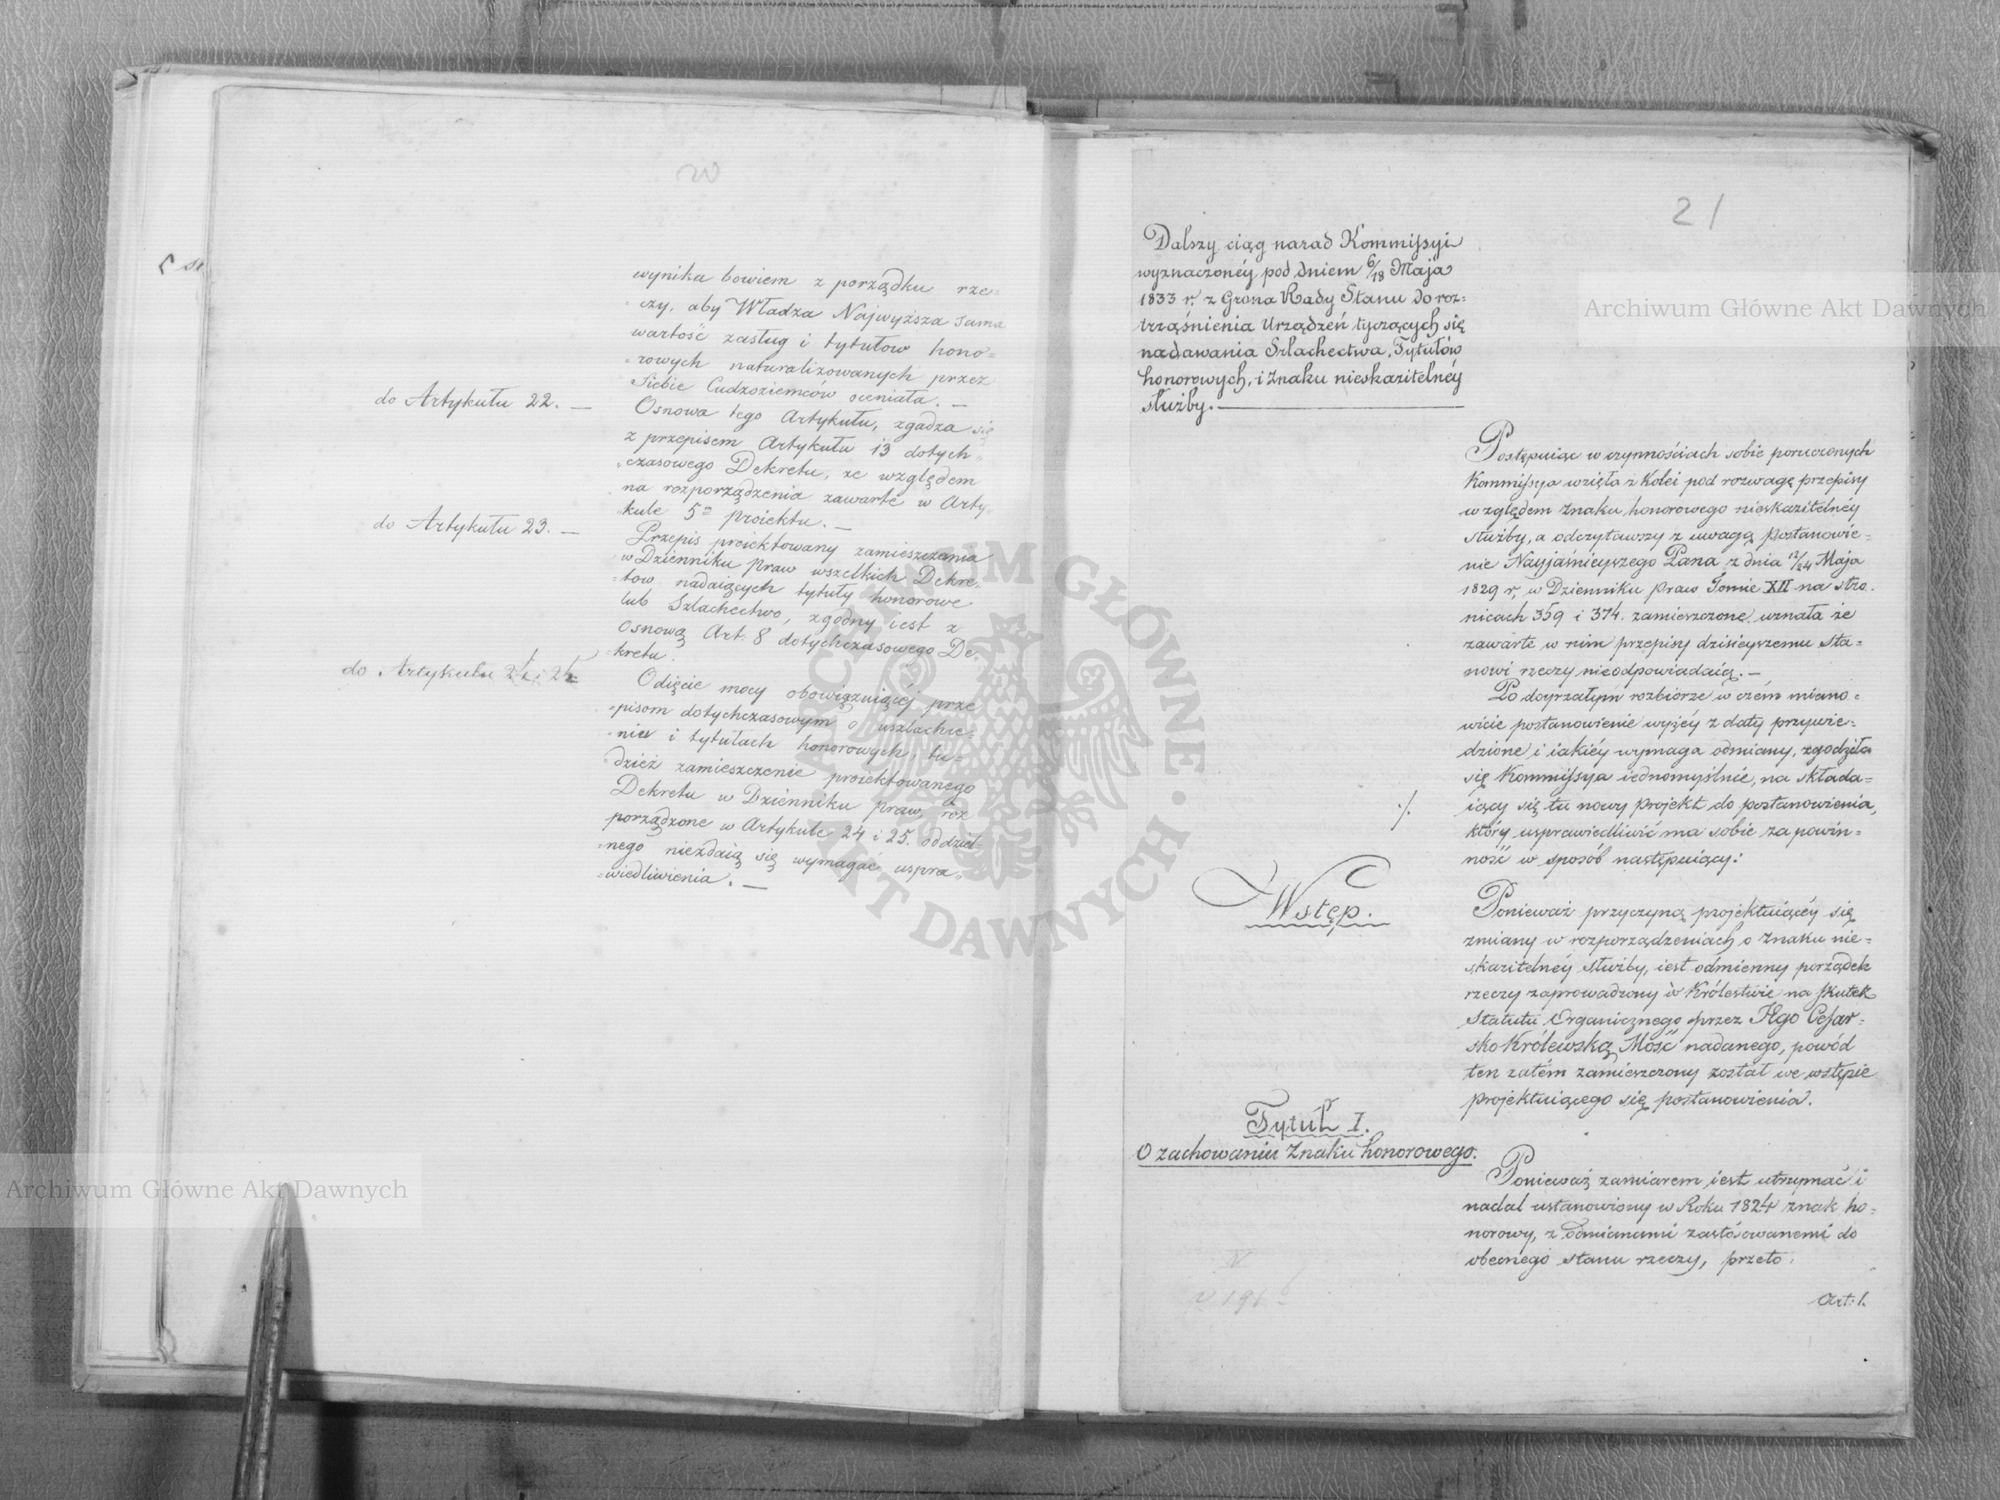 20
wynika bowiem z porządku rze=
=czy, aby Władza Najwyższa sama
wartość zasług i tytułow hono=
=rowych naturalizowanych przez
Siebie Cudzoziemców oceniała. —
do Artykułu 22. —
Osnowa tego Artykułu, zgadza się
z przepisem Artykułu 13 dotych=
=czasowego Dekretu, ze względem
na rozporządzenia zawarte w Arty=
kule 5m proiektu. —
do Artykułu 23. —
Przepis proiektowany zamieszczania
w Dzienniku praw wszelkich Dekre=
=tow nadaiących tytuły honorowe
lub Szlachectwo, zgodny iest z
Osnową Art. 8 dotychczasowego De=
kretu.
do Artykułu 24 i 25
Odięcie mocy obowiązuiącej prze=
=pisom dotychczasowym o uszlachce=
=niu i tytułach honorowych, tu=
=dzież zamieszczenie proiektowanego
Dekretu w Dzienniku praw, roz
porządzone w Artykule 24 i 25. oddziel=
=nego niezdaią się wymagać uspra=
=wiedliwienia. —
21
Dalszy ciąg narad Kommissyi
wyznaczonéy pod dniem 6/18 Maja
1833 r, z Grona Rady Stanu do roz=
trząśnienia Urządzeń tyczących się
nadawania Szlachectwa, Tytułów
honorowych, i Znaku nieskazitelnéy
służby. —
Postępuiąc w czynnościach sobie poruczonych
Kommissya wzięła z Kolei pod rozwagę przepisy
względem Znaku honorowego nieskazitelnéy
służby, a odczytawszy z uwagą Postanowie=
nie Nayjaśnieyszego Pana z dnia 12/24 Maja
1829 r, w Dzienniku Praw Tomie XII na stro=
nicach 359 i 374. zamieszczone, uznała że
zawarte w nim przepisy dzisieyszemu sta=
nowi rzeczy nieodpowiadaią. —
Po doyrzałym rozbiorze w czém miano=
wicie postanowienie wyżéy z daty przywie=
dzione i iakiéy wymaga odmiany, zgodziła
się Kommissya iednomyślnie, na składa=
iący się tu nowy projekt do postanowienia,
./.
który usprawiedliwić ma sobie za powin=
ność w sposób następuiący:
Wstęp.
Ponieważ przyczyną projektuiącéy się
zmiany w rozporządzeniach o Znaku nie=
skazitelnéy służby, iest odmienny porządek
rzeczy zaprowadzony w Królestwie na skutek
Statutu Organicznego przez Jego Cesar=
sko Królewską Mość nadanego, powód
ten zatém zamieszczony został we wstępie
projektuiącego się postanowienia.
Tytuł I.
O zachowaniu Znaku honorowego.
Ponieważ zamiarem iest utrzymać i
nadal ustanowiony w Roku 1824 znak ho=
norowy, z odmianami zastósowanemi do
obecnego stanu rzeczy, przeto
Art: 1.
Archiwum Główne Akt Dawnych
Archiwum Główne Akt Dawnych
ARCHIWUM GŁÓWNE · AKT DAWNYCH ·